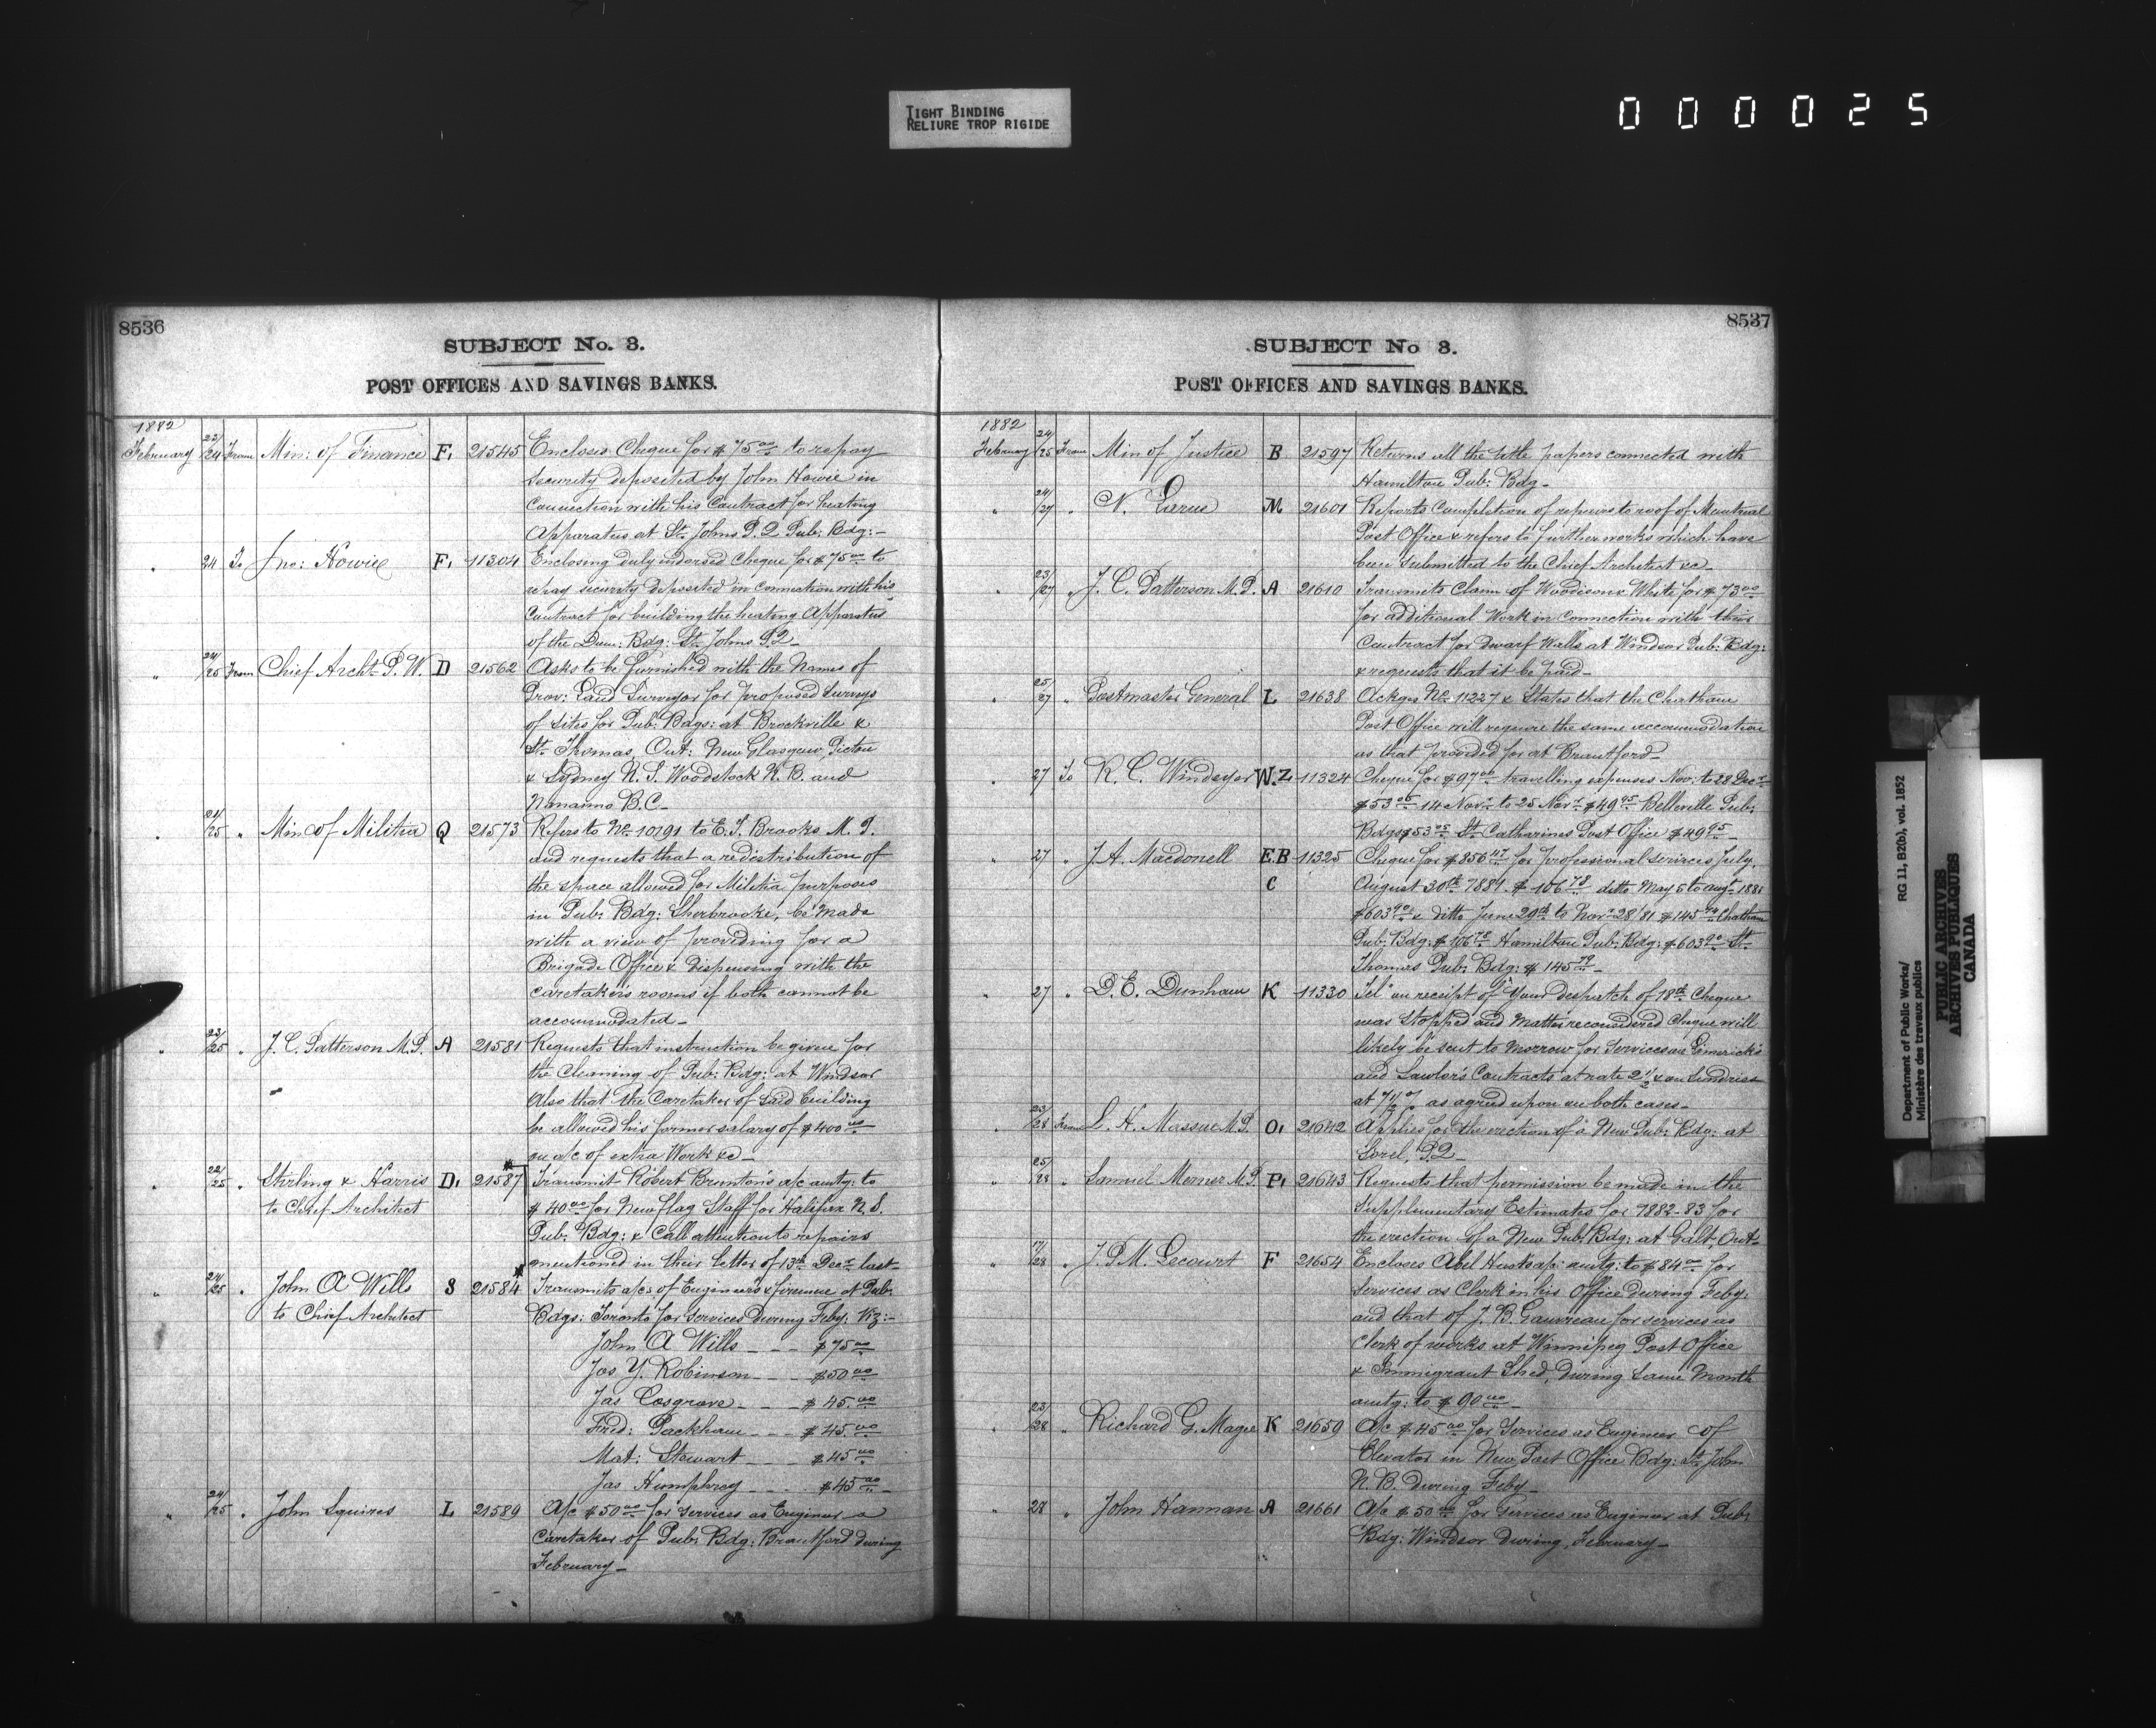 TIGHT BINDING
RELIURE TROP RIGIDE
000025
8536
SUBJECT No. 3.
POST OFFICES AND SAVINGS BANKS.
1882
February 23/24 From Min: of Finance F. 21545 Encloses Cheque for $75.00 to repay
security deposited by John Howie in
connection with his Contract for heating
Apparatus at St. Johns P.Q. Pub: Bdg:-
" 24 To Jno: Howie F. 11304 Enclosing duly endorsed cheque for $75.00 to
repay security deposited in connection with his
contract for building the heating Apparatus
of the Dom: Bdg: St. Johns P.Q.
" 24/25 From Chief Archt. P.W. D 21562 Asks to be furnished with the Names of
Prov: Land Surveyor for proposed Surveys
of sites for Pub: Bdgs: at Brockville &
St. Thomas, Ont: New Glasgow, Pictou
& Sydney N.S. Woodstock N.B. and
Nanaimo B.C.
" 24/25 " Min of Militia Q 21573 Refers to No. 10791 to E.T. Brooks M.P.
and requests that a redistribution of
the space allowed for Militia purposes
in Pub: Bdg: Sherbrooke, be made
with a view of providing for a
Brigade Office & dispensing with the
caretaker's rooms if both cannot be
accommodated-
" 23/25 " J.C. Patterson M.P. A 21581 Requests that instruction be given for
the cleaning of Pub: Bdg: at Windsor
Also that the Caretaker of said building
be allowed his former salary of $400.00
on a/c of extra Work &c-
" 22/25 " Stirling & Harris D. 21587 Transmit Robert Brunton's a/c amtg: to
to Chief Architect $40.00 for New Flag Staff for Halifax N.S.
Pub: Bdg: & Call attention to repairs
mentioned in their letter of 13th Decr last-
" 24/25 " John A Wills S 21584 Transmits a/cs of Engineers & firemen at Pub:
to Chief Architect Bdgs: Toronto for services during Feby: Viz:-
John A Wills - - - $75.00
Jas Y. Robinson - - - $50.00
Jas Cosgrove - - - $45.00
Fred: Packham - - - $45.00
Mat: Stewart - - - $45.00
Jas Humphrey - - - $45.00
" 24/25 " John Squires L 21589 A/c $50.00 for services as Engineer &
Caretaker of Pub: Bdg: Brantford during
February-
8537
SUBJECT No 3.
POST OFFICES AND SAVINGS BANKS.
1882
February 24/25 From Min of Justice B 21597 Returns all the title papers connected with
Hamilton Pub: Bdg-
" 24/27 " N. Larue M 21601 Reports Completion of repairs to roof of Montreal
Post Office & refers to further works which have
been submitted to the Chief Architect &c-
" 23/27 " J.C. Patterson M.P. A 21610 Transmits Claim of Woodison & White for $73.00
for additional Work in connection with their
Contract for Dwarf Walls at Windsor Pub: Bdg:
& requests that it be paid-
" 25/27 " Postmaster General L 21638 Ackges No. 11227 & States that the Chatham
Post Office will require the same accommodation
as that provided for at Brantford-
" 27 To R.C. Windeyer W.Z 11324 Cheque for travelling expenses Nov: to 28 Decr
14 Novr to 25 Novr $49.95 Belleville Pub:
Bdgs St. Catharines Post Office $49.95
" 27 " J.A. Macdonell E.B 11325 Cheque for $856.47 for Professional services July,
C August 30th 1881. $106.78 ditto May 5 to Augt 1881
$603.90 & ditto June 29th to Novr 28/81 Chatham
Pub: Bdg: $106.78 Hamilton Pub: Bdg: $603.90 St.
Thomas Pub: Bdg: $145.79
" 27 " D.E. Dunham K 11330 Tel: on receipt of Your despatch of 18th Cheque
was stopped and matter reconsidered Cheque will
likely be sent to Morrow for Services on Limerick's
and Lawlor's Contracts at rate 2 1/2 & on Sundries
at 7 1/2 % as agreed upon in both cases-
" 23/28 From L.H. Massue M.P. O. 21642 Applies for the erection of a New Pub: Bdg: at
Sorel, P.Q-
" 25/28 " Samuel Merner M.P. P. 21643 Requests that permission be made in the
Supplementary Estimates for 1882-83 for
the erection of a New Pub: Bdg: at Galt, Ont-
" 17/28 " J.P.M. Lecourt F 21654 Encloses Abel amtg: to $84.00 for
Services as Clerk in his Office during Feby:
and that of J.B. Gauvreau for services as
Clerk of works at Winnipeg Post Office
& Immigrant Shed, During Same Month
amtg: to $90.00
" 23/28 " Richard G. Magee K 21659 A/c $45.00 for Services as Engineer of
Elevator in New Post Office Bdg: St. John
N.B. During Feby-
" 28 " John Hannan A 21661 A/c $50.00 for Services as Engineer at Pub:
Bdg: Windsor During, February-
Department of Public Works/ RG 11, B2(b), vol. 1852
Ministère des travaux publics
PUBLIC ARCHIVES
ARCHIVES PUBLIQUES
CANADA